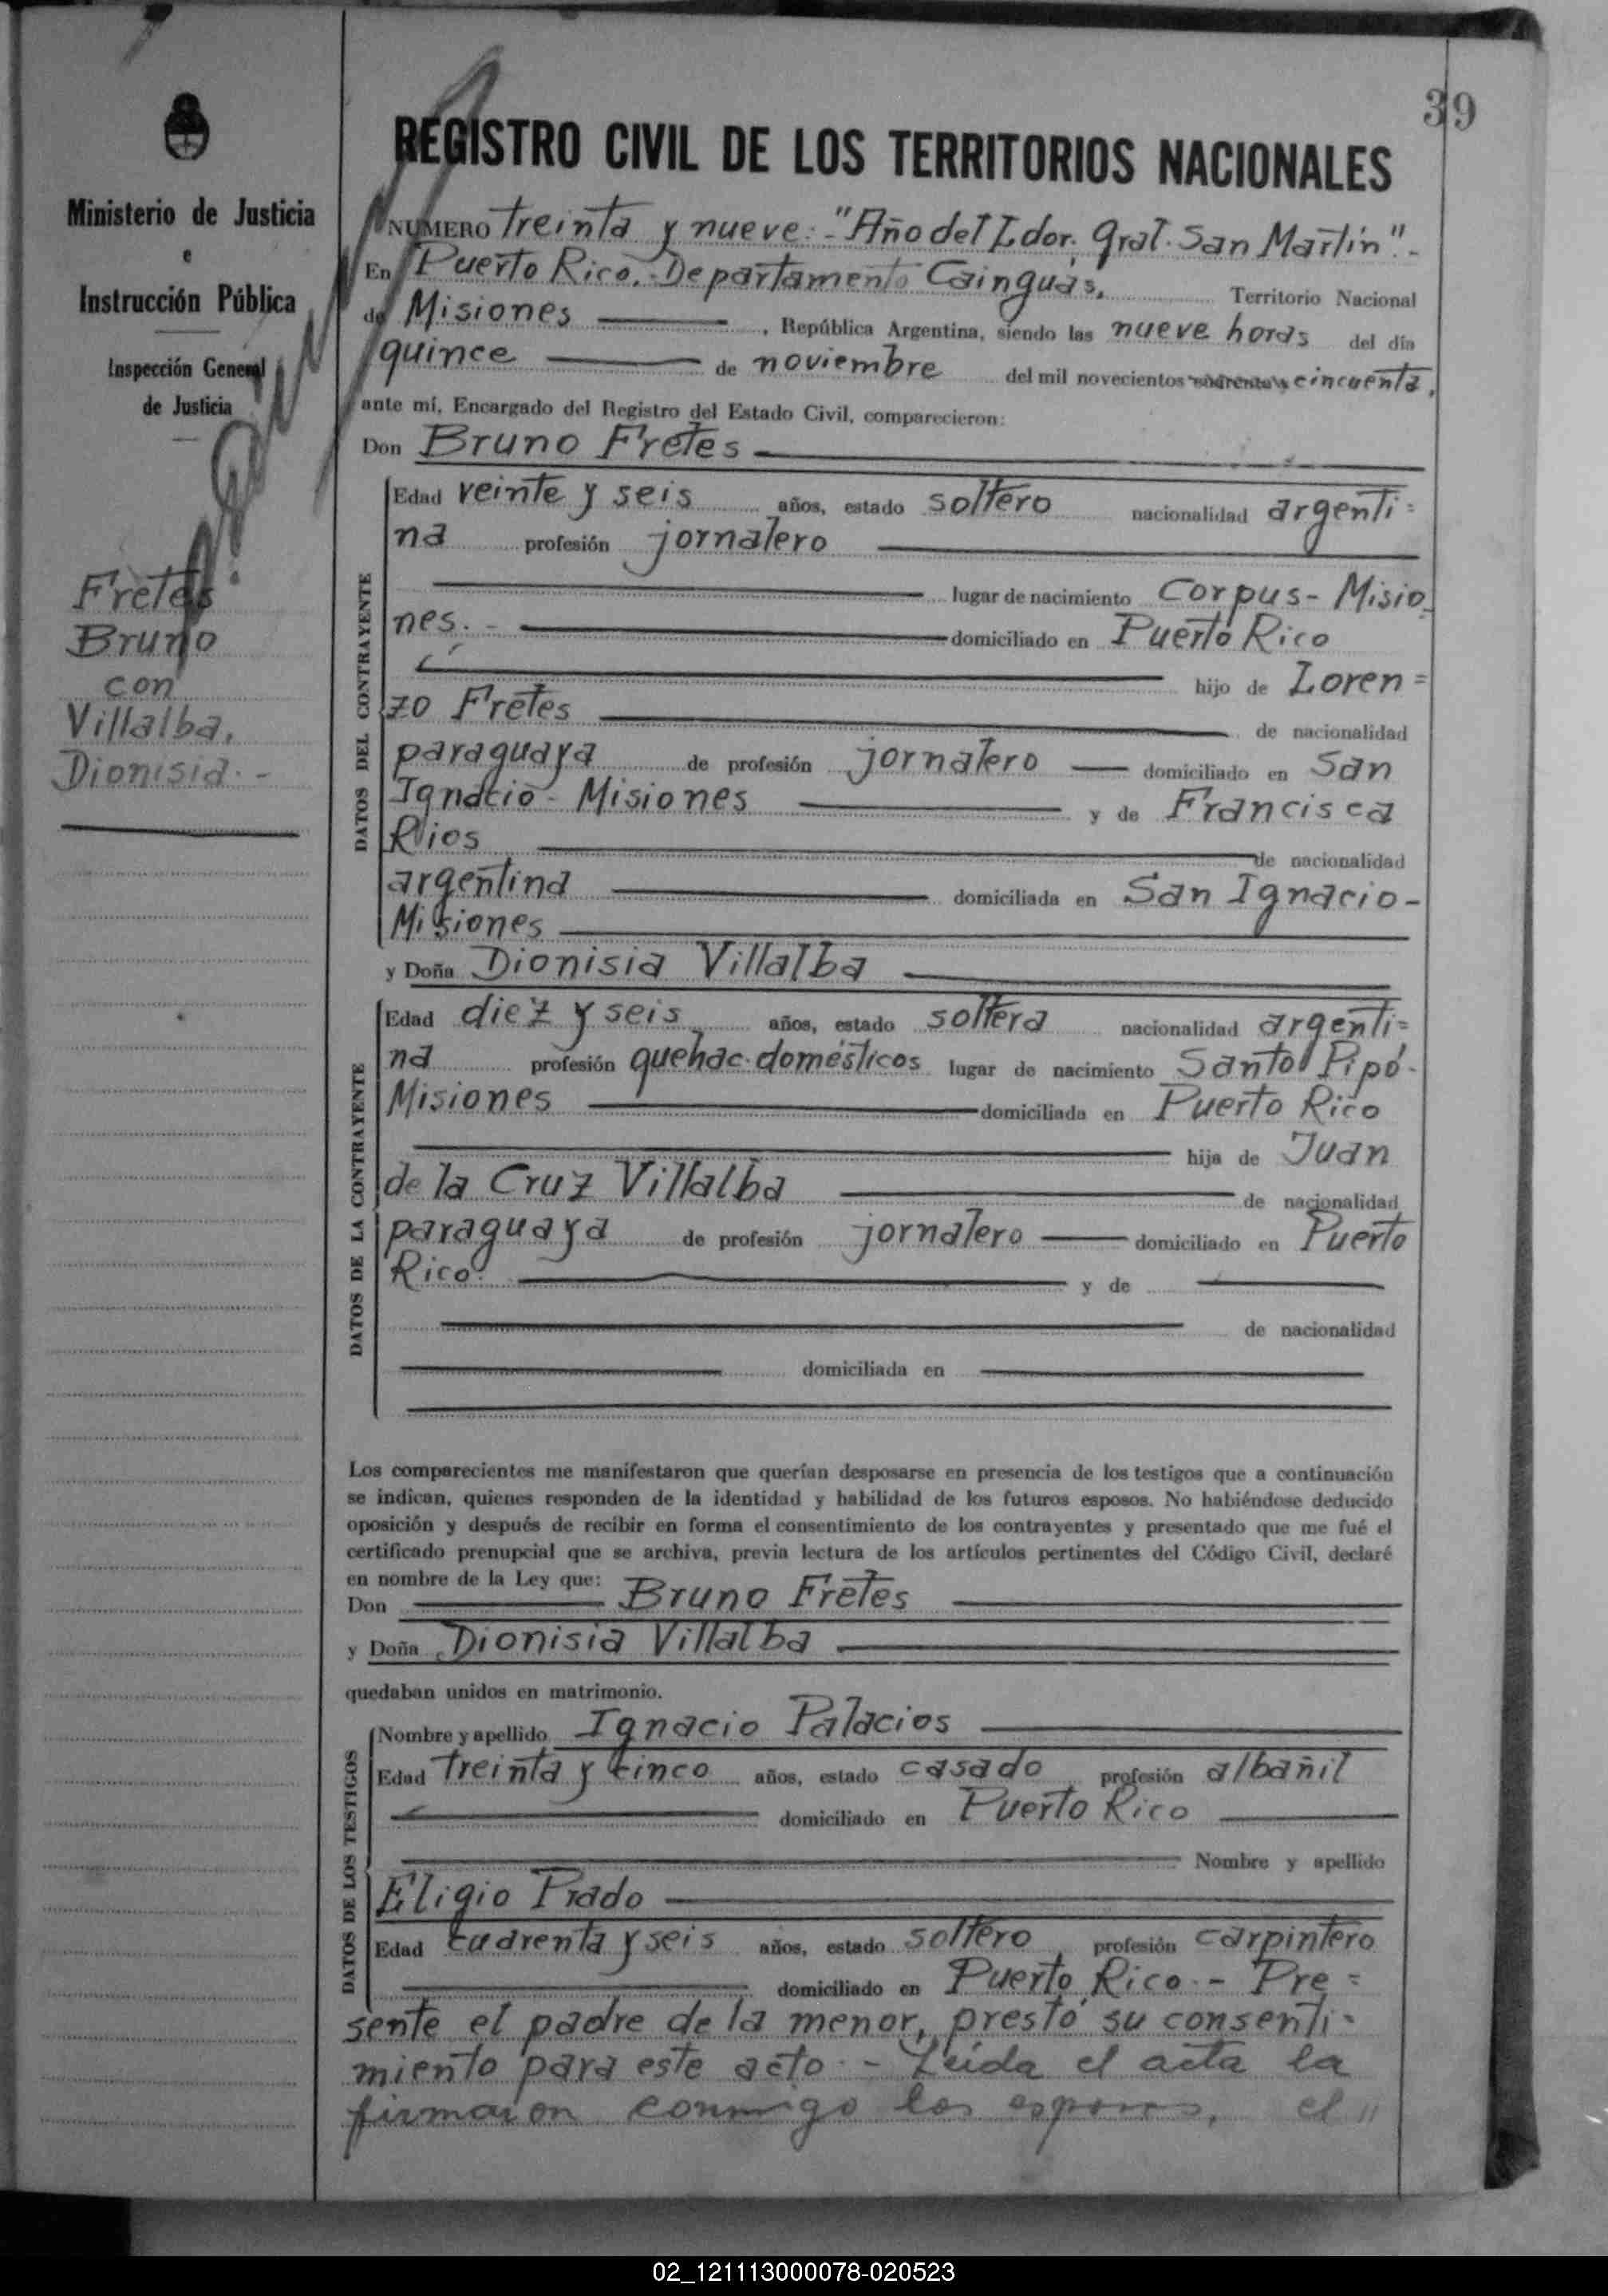 39
Ministerio de Justicia
e
Instrucción Pública
Inspección General
de Justicia
Fretes
Bruno
con
Villalba,
Dionisia.-
REGISTRO CIVIL DE LOS TERRITORIOS NACIONALES
NUMERO treinta y nueve.-"Año del Ldor. Gral. San Martín".-
En Puerto Rico.-Departamento Cainguás, Territorio Nacional
de Misiones , República Argentina, siendo las nueve horas del día
quince de noviembre del mil novecientos cuarenta y cincuenta,
ante mí, Encargado del Registro del Estado Civil, comparecieron:
Don Bruno Fretes
DATOS DEL CONTRAYENTE
Edad veinte y seis años, estado soltero nacionalidad argenti=
na profesión jornalero
lugar de nacimiento Corpus- Misio
nes.- domiciliado en Puerto Rico
hijo de Loren=
zo Fretes de nacionalidad
paraguaya de profesión jornalero domiciliado en San
Ignacio- Misiones y de Francisca
Rios de nacionalidad
argentina domiciliada en San Ignacio-
Misiones
y Doña Dionisia Villalba
DATOS DE LA CONTRAYENTE
Edad diez y seis años, estado soltera nacionalidad argenti=
na profesión quehac. domésticos lugar de nacimiento Santo Pipó-
Misiones domiciliada en Puerto Rico
hija de Juan
de la Cruz Villalba de nacionalidad
paraguaya de profesión jornalero domiciliado en Puerto
Rico. y de
de nacionalidad
domiciliada en
Los comparecientes me manifestaron que querían desposarse en presencia de los testigos que a continuación
se indican, quienes responden de la identidad y habilidad de los futuros esposos. No habiéndose deducido
oposición y después de recibir en forma el consentimiento de los contrayentes y presentado que me fué el
certificado prenupcial que se archiva, previa lectura de los artículos pertinentes del Código Civil, declaré
en nombre de la Ley que:
Don Bruno Fretes
y Doña Dionisia Villalba
quedaban unidos en matrimonio.
DATOS DE LOS TESTIGOS
Nombre y apellido Ignacio Palacios
Edad treinta y cinco años, estado casado profesión albañil
domiciliado en Puerto Rico
Nombre y apellido
Eligio Prado
Edad cuarenta y seis años, estado soltero profesión carpintero
domiciliado en Puerto Rico.- Pre=
sente el padre de la menor, prestó su consenti-
miento para este acto.- Leída el acta la
firmaron conmigo los esposos, el "
02_121113000078-020523